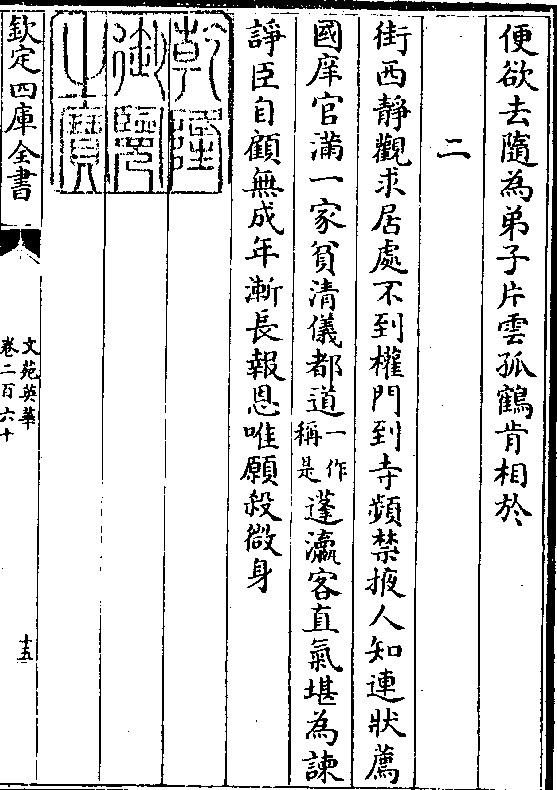 便欲去隨為弟子片雲孤鶴肯相於
二
街西靜觀求居處不到權門到寺頻禁掖人知連狀薦
國庠官滿一家貧清儀都道一作稱是蓬瀛客直氣堪為諫
諍臣自顧無成年漸長報恩唯願殺微身
乾隆御覽之寶
欽定四庫全書
文苑英華
卷二百六十
十五